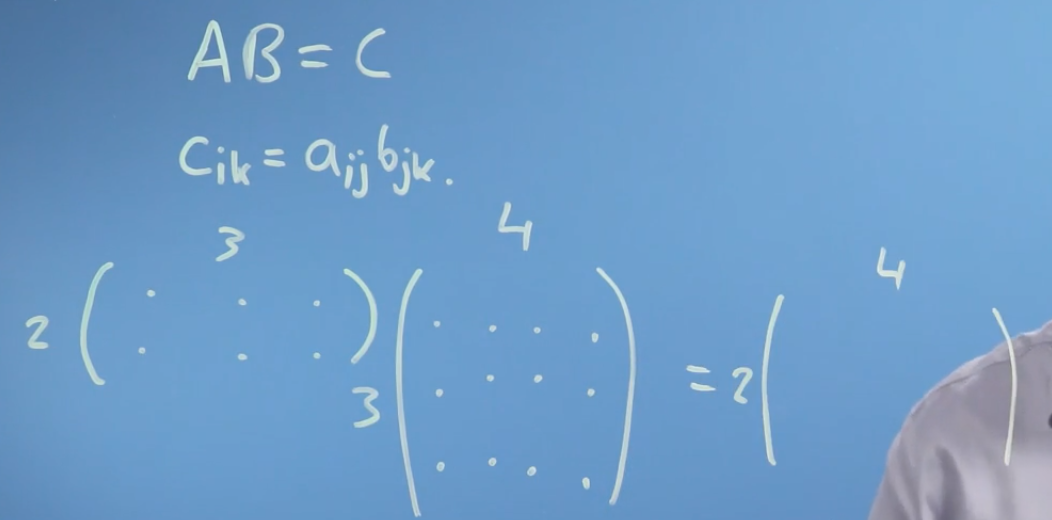 AB = C
c_{ik} = a_{ij} b_{jk}.
3 4 4
2 ( . . . ) ( . . . . ) = 2 ( )
( . . . ) 3 ( . . . . )
( . . . . )